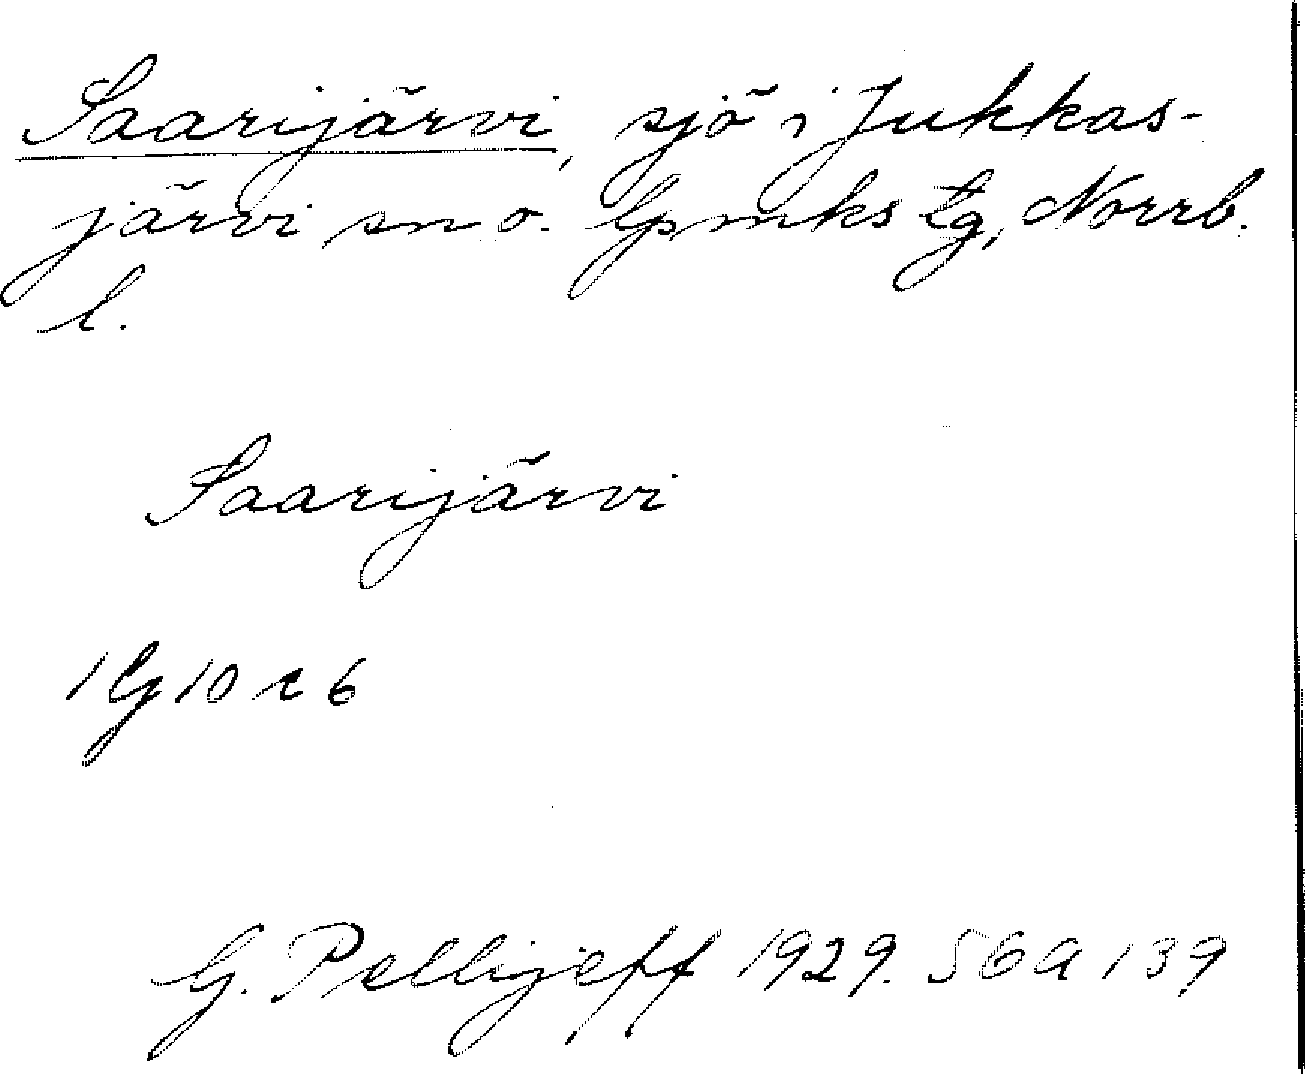 Saarijärvi, sjö i Jukkas-
järvi sn o. lpmks tg, Norrb.
l.
Saarijärvi
1 G 10 c 6
G. Pellijeff 1929. 56a 139